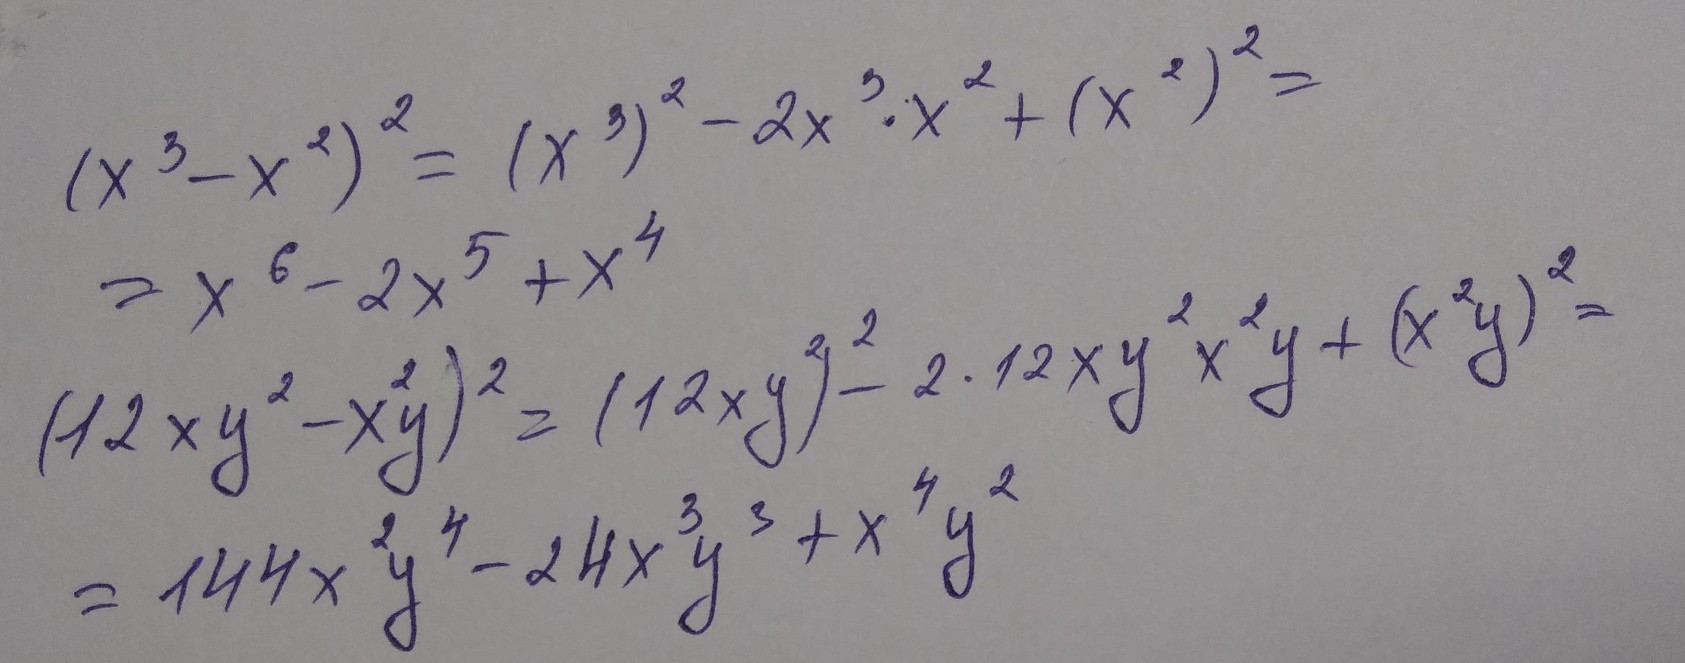 (x³-x²)²=(x³)²-2x³·x²+(x²)²=
=x⁶-2x⁵+x⁴
(12xy²-x²y)²=(12xy²)²-2·12xy²x²y+(x²y)²=
=144x²y⁴-24x³y³+x⁴y²